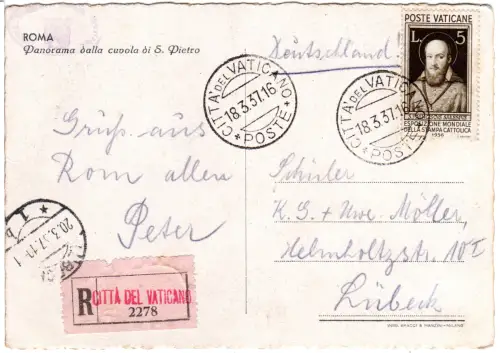 ROMA
Panorama dalla cupola di S. Pietro
Deutschland!
POSTE VATICANE
L. 5
ESPOSIZIONE MONDIALE
DELLA STAMPA CATTOLICA
1936
CITTÀ DEL VATICANO
18.3.37.16
POSTE
CITTÀ DEL VATICANO
18.3.37.16
POSTE
Grüß aus
Rom allen
Peter
Schüler
K. G. + Uwe Möller,
Helmholtzstr. 10 I
Lübeck
20.3.37.
R CITTÀ DEL VATICANO
2278